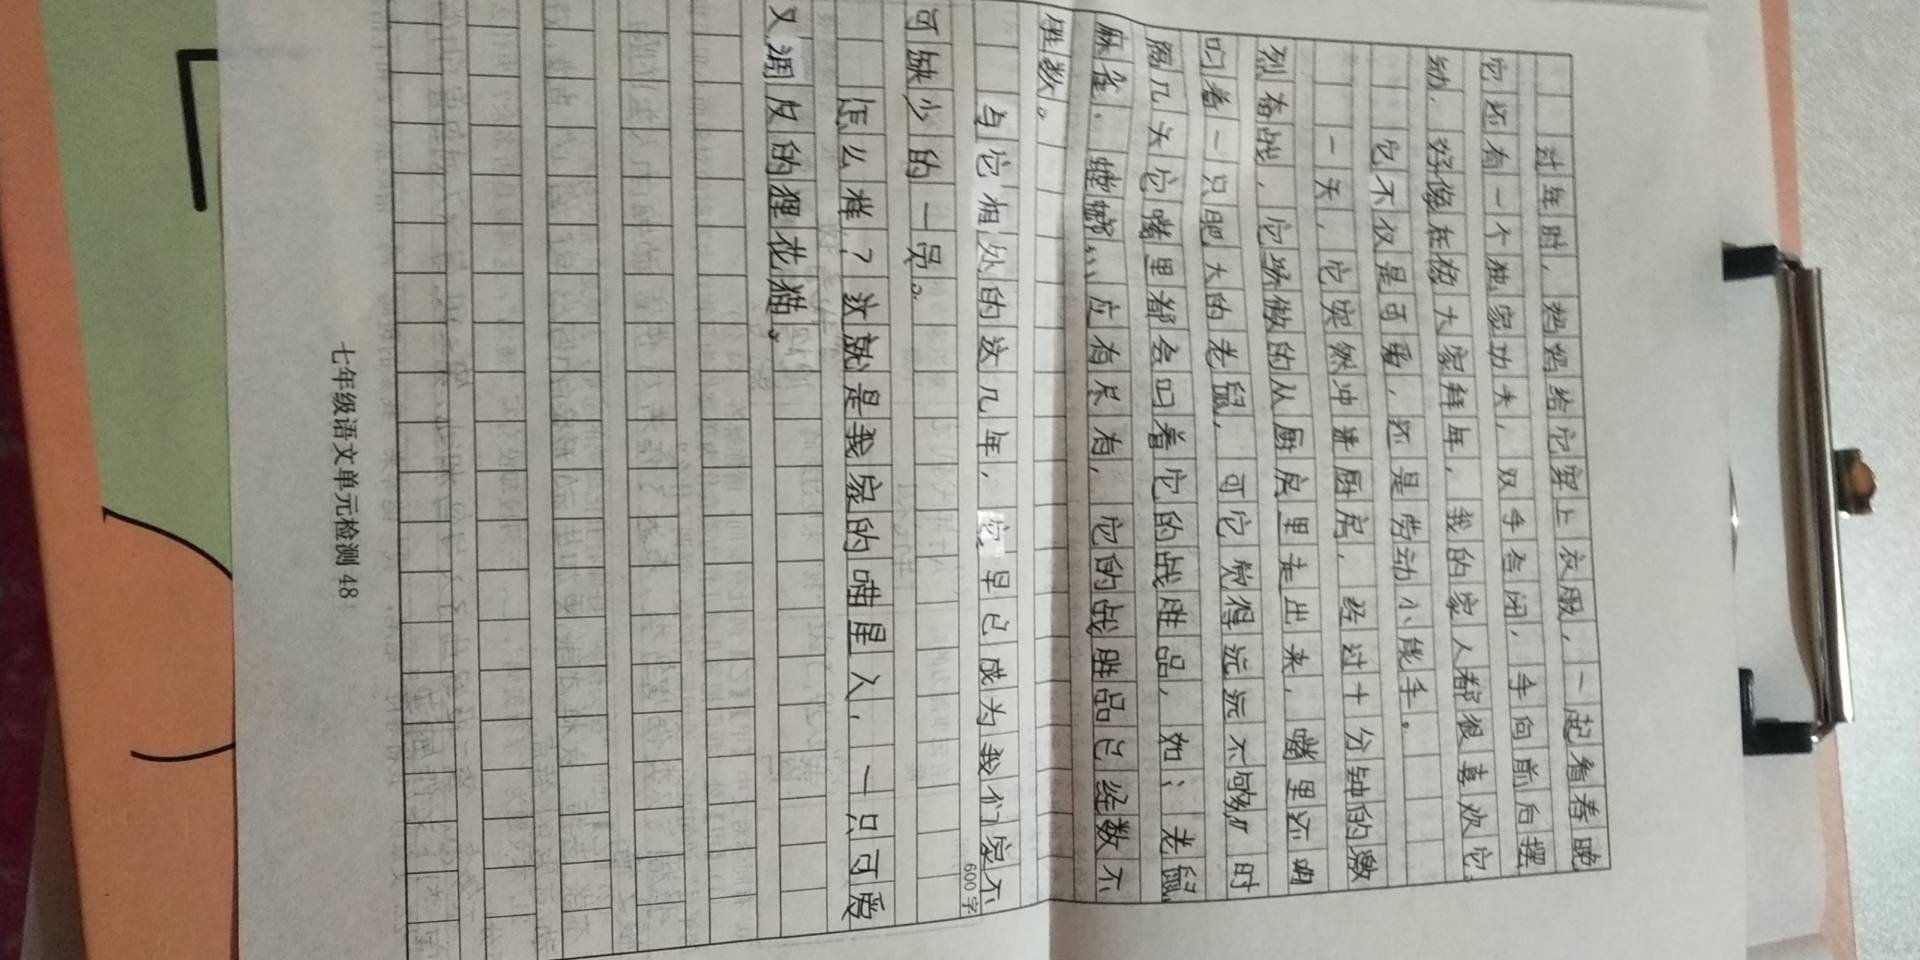 过年时，妈妈给它穿上衣服，一起看春晚
它还有一个独家功夫，双手合闭，手向前后摆
动，好像在给大家拜年，我的家人都很喜欢它
它不仅是可爱，还是劳动小能手。
一天，它突然冲进厨房，经过十分钟的激
烈奋战，它骄傲的从厨房里走出来，嘴里还
叼着一只肥大的老鼠，可它觉得远远不够，时
隔几天它嘴里都会叼着它的战胜品，如：老鼠
麻雀、蟑螂……应有尽有，它的战胜品已经数不
胜数。
与它相处的这几年，它早已成为我们家不
600字
可缺少的一员。
怎么样？这就是我家的喵星人，一只可爱
又调皮的狸花猫。
七年级语文单元检测 48